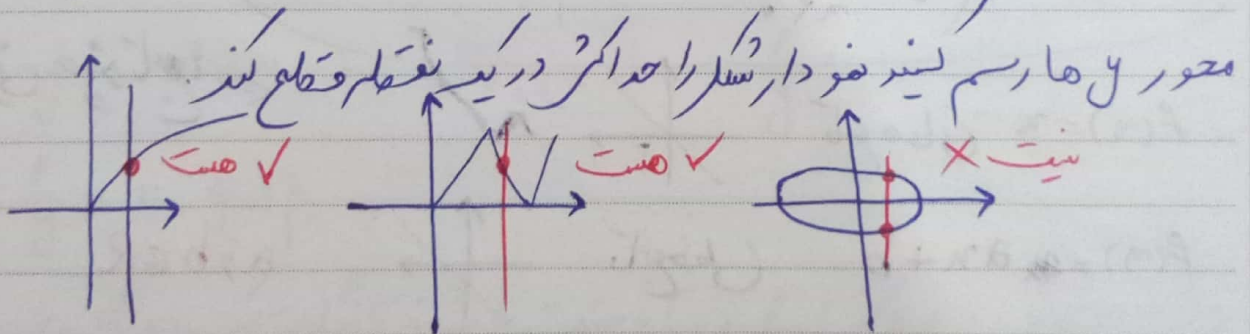 محور y ها رسم کنید نمودار شکل را حداکثر در یک نقطه قطع کند.
هست ✓ هست ✓ نیست ×